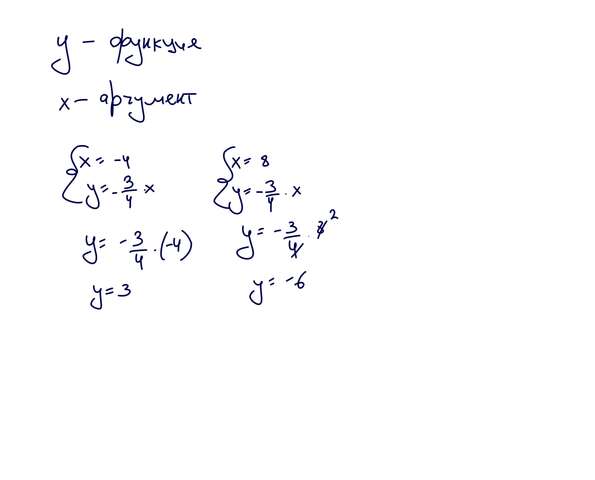 y – функция
x – аргумент
{ x = -4
y = -3/4 x
y = -3/4 · (-4)
y = 3
{ x = 8
y = -3/4 · x
y = -3/4 · 8 2
y = -6